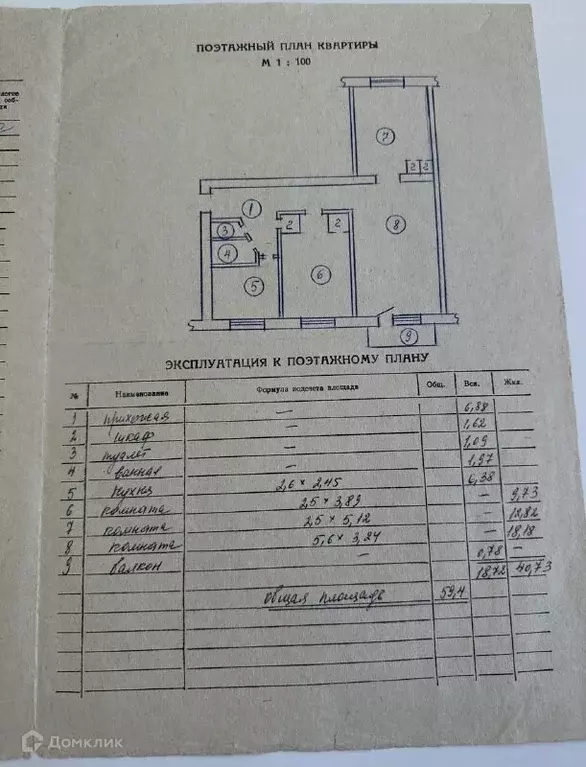 ПОЭТАЖНЫЙ ПЛАН КВАРТИРЫ
М 1 : 100
7
2 2
1
3
2 2
8
4
6
5
9
ЭКСПЛУАТАЦИЯ К ПОЭТАЖНОМУ ПЛАНУ
№ Наименование Формула подсчета площади Общ. Всп. Жил.
1 прихожая — 6,88
2 шкаф — 1,62
3 туалет — 1,09
4 ванная — 1,97
5 кухня 2,6 × 2,45 6,38
6 комната 2,5 × 3,89 — 9,73
7 комната 2,5 × 5,12 — 12,82
8 комната 5,6 × 3,24 — 18,18
9 балкон — 0,78 —
18,72 40,73
общая площадь 59,4
Домклик